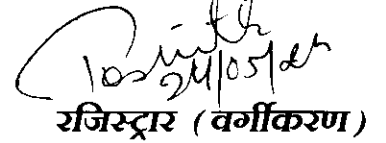 24/05/24
रजिस्ट्रार (वर्गीकरण)